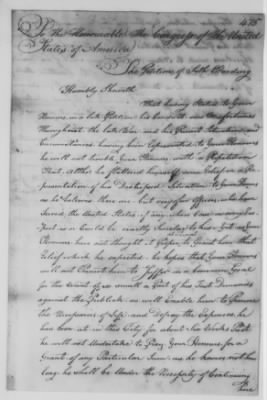 475
To the Honourable the Congress of the United
States of America
The Petition of Seth Harding
Humbly Sheweth
That having Stated to Your
Honours in a late Petition his Conduct and Misfortunes
Throughout the late War and his Present Situation and
Circumstances having been Represented to Your Honours
he will not trouble Your Honours with a Repetition
That Altho he flattered himself some Relief on a Re-
presentation of his Distressed Situation to Your Honours
as he believes there are but very few Officers who have
Served the United States, if any whose Case is
as he could be But as Your
Honours have not thought it Proper to Grant him that
Relief which he expected, he hopes that Your Honours
will not Permit him to Suffer in a Common Goal
for the want of so small a Part of his Just Demands
against the Publick as will Enable him to Procure
the Necessaries of Life and Defray the Expences he
has been at in this City for about Six Weeks Past
he will not Undertake to Pray Your Honours for a
Grant of any Particular Sum as he knows not how
long he shall be Under the Necessity of Continuing
here